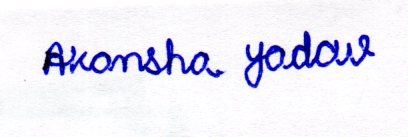 Akansha yadav